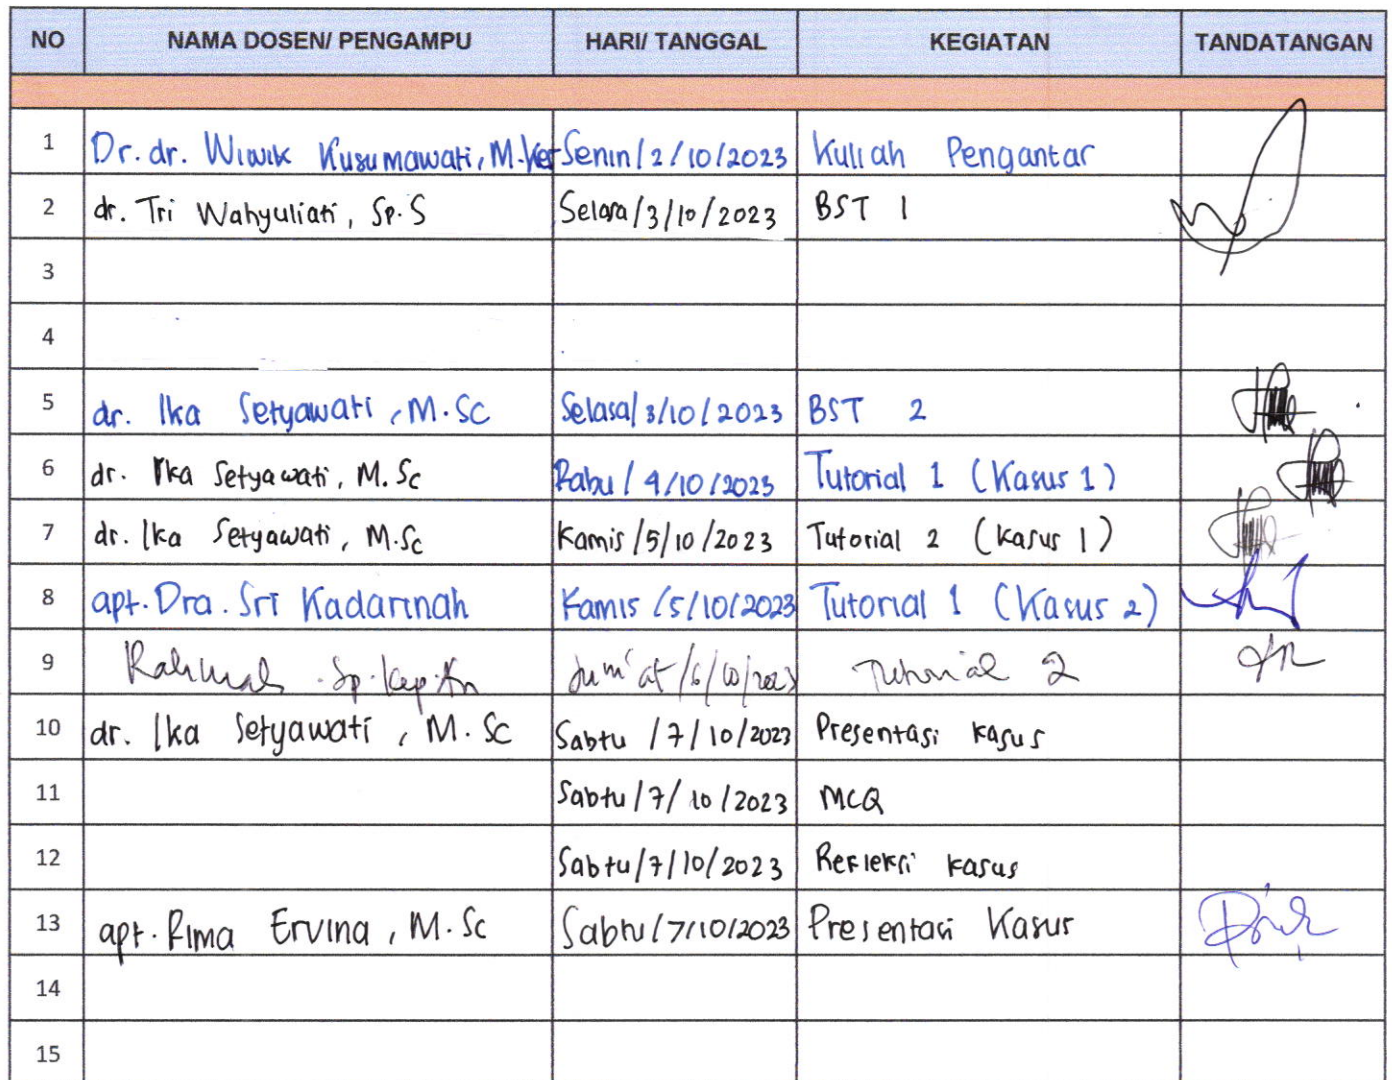 NO NAMA DOSEN/ PENGAMPU HARI/ TANGGAL KEGIATAN TANDATANGAN
1 Dr. dr. Wiwik Kusumawati, M.Kes Senin/2/10/2023 Kuliah Pengantar
2 dr. Tri Wahyuliati, Sp.S Selasa/3/10/2023 BST 1
3
4
5 dr. Ika Setyawati, M.Sc Selasa/3/10/2023 BST 2
6 dr. Ika Setyawati, M.Sc Rabu/4/10/2023 Tutorial 1 (Kasus 1)
7 dr. Ika Setyawati, M.Sc Kamis/5/10/2023 Tutorial 2 (Kasus 1)
8 apt. Dra. Sri Kadarinah Kamis/5/10/2023 Tutorial 1 (Kasus 2)
9 Rahmah Sp.Kep.An Jum'at/6/10/2023 Tutorial 2
10 dr. Ika Setyawati, M.Sc Sabtu/7/10/2023 Presentasi Kasus
11 Sabtu/7/10/2023 MCQ
12 Sabtu/7/10/2023 Refleksi Kasus
13 apt. Rima Ervina, M.Sc Sabtu/7/10/2023 Presentasi Kasus
14
15